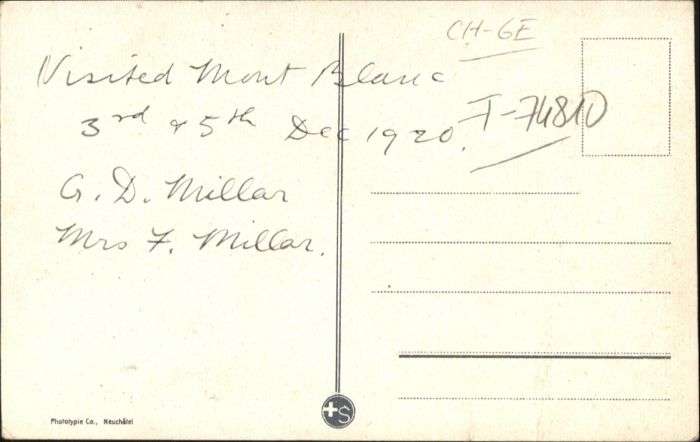 CH-GE
Visited Mont Blanc
3rd & 5th Dec 1920.
I-74810
G. D. Millar
Mrs F. Millar.
Phototypie Co., Neuchâtel
S